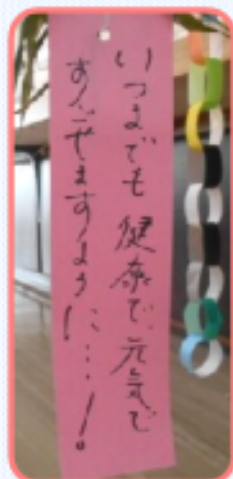 いつまでも健康で、元気で
すごせますように…!